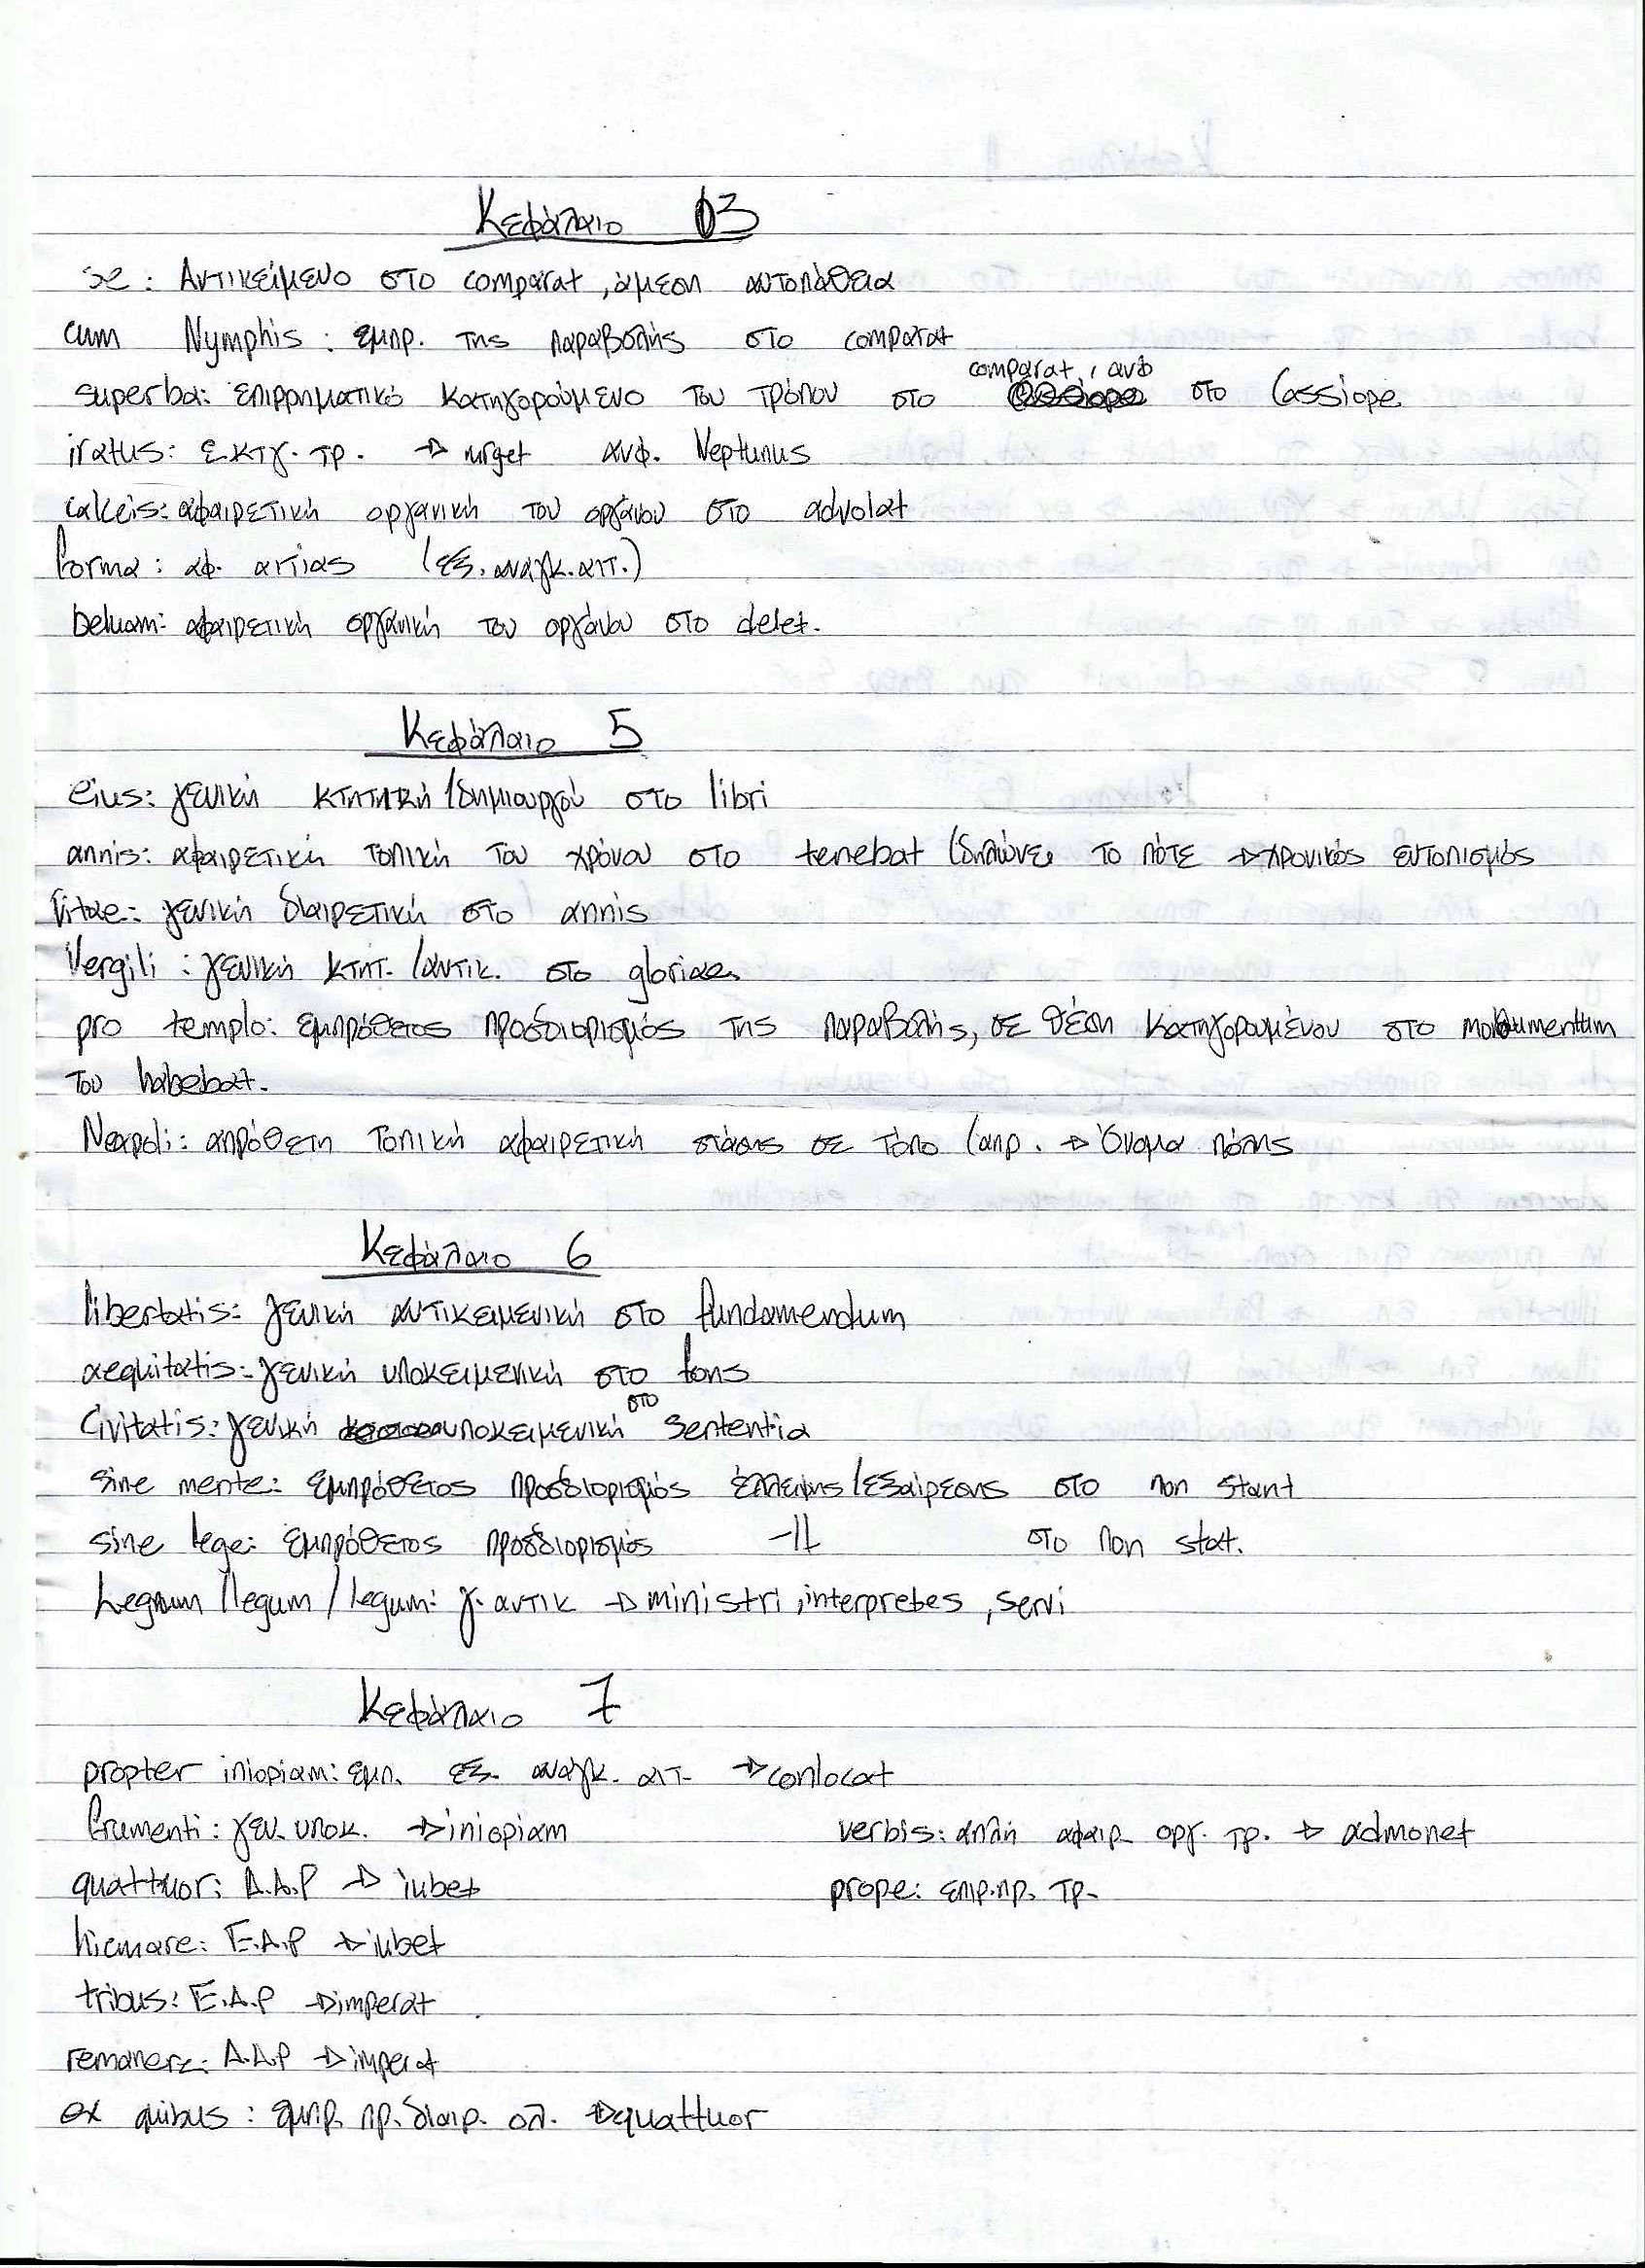 Κεφάλαιο 3
se: Αντικείμενο στο comparat, άμεση αυτοπάθεια
cum Nymphis: εμπρ. της παραβολής στο comparat
comparat, ανφ
superba: επιρρηματικό κατηγορούμενο του τρόπου στο στο Cassiope
iratus: ε.κτγ. τρ. → urget ανφ. Neptunus
calceis: αφαιρετική οργανική του οργάνου στο advolat
forma: αφ. αιτίας (εξ. αναγκ. αιτ.)
beluam: αφαιρετική οργανική του οργάνου στο delet.
Κεφάλαιο 5
eius: γενική κτητική/δημιουργού στο libri
annis: αφαιρετική τοπική του χρόνου στο tenebat (δηλώνει το πότε → χρονικός εντοπισμός
Vitae: γενική διαιρετική στο annis
Vergili: γενική κτητ. /αντικ. στο gloriae
pro templo: εμπρόθετος προσδιορισμός της παραβολής, σε θέση κατηγορουμένου στο monumentum
του habebat.
Neapoli: απρόθετη τοπική αφαιρετική στάσης σε τόπο (απρ. → Όνομα πόλης
Κεφάλαιο 6
libertatis: γενική αντικειμενική στο fundamendum
aequitatis: γενική υποκειμενική στο fons
στο
Civitatis: γενική υποκειμενική sententia
sine mente: εμπρόθετος προσδιορισμός έλλειψης/εξαίρεσης στο non stant
sine lege: εμπρόθετος προσδιορισμός -//- στο non stat.
Legum /legum / legum: γ. αντικ → ministri, interpretes, servi
Κεφάλαιο 7
propter iniopiam: εμπ. εξ. αναγκ. αιτ. → conlocat
frumenti: γεν. υποκ. → iniopiam verbis: απλή αφαιρ. οργ. τρ. → admonet
quattuor: Α.Α.Ρ → iubet prope: επιρ. πρ. τρ.
hiemare: Ε.Α.Ρ → iubet
tribus: Ε.Α.Ρ → imperat
remanere: Α.Α.Ρ → imperat
ex quibus: εμπρ. πρ. διαιρ. ολ. → quattuor